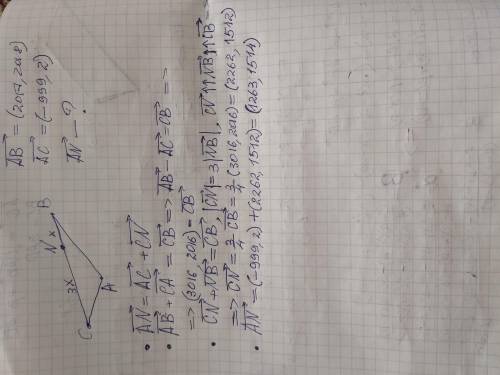 C 3x N x B
A
AB = (2017, 2018)
AC = (-999, 2)
AN — ?
• AN = AC + CN
• AB + CA = CB => AB - AC = CB =>
=> (3016, 2016) = CB
• CN + NB = CB, |CN| = 3|NB|, CN↑↑NB↑↑CB
=> CN = 3/4 CB = 3/4 · (3016, 2016) = (2262, 1512)
• AN = (-999, 2) + (2262, 1512) = (1263, 1514)